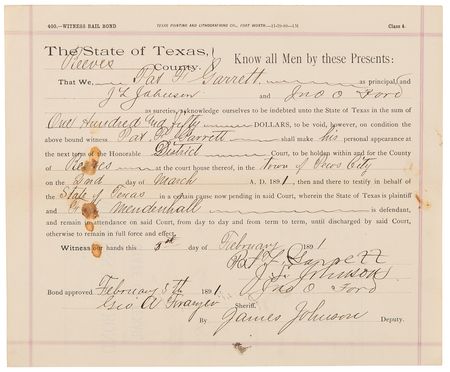 400.—WITNESS BAIL BOND TEXAS PRINTING AND LITHOGRAPHING CO., FORT WORTH. Class 4.
The State of Texas,
Reeves County. Know all Men by these Presents:
That We, Pat F. Garrett as principal, and
J L Johnson and Jno O Ford
as sureties, acknowledge ourselves to be indebted unto the State of Texas in the sum of
One Hundred and fifty DOLLARS, to be void, however, on condition the
above bound witness Pat F Garrett shall make his personal appearance at
the next term of the Honorable District Court, to be holden within and for the County
of Reeves at the court house thereof, in the town of Pecos City
on the day of March A. D. 1891, then and there to testify in behalf of
the State of Texas in a certain cause now pending in said Court, wherein the State of Texas is plaintiff
and Mendenhall is defendant,
and remain in attendance on said Court, from day to day and from term to term, until discharged by said Court,
otherwise to remain in full force and effect.
Witness our hands this 3rd day of February 1891
Pat F. Garrett
J. L. Johnson
Jno O Ford
Bond approved February 5th 1891
Geo A Frazer Sheriff.
By James Johnson Deputy.